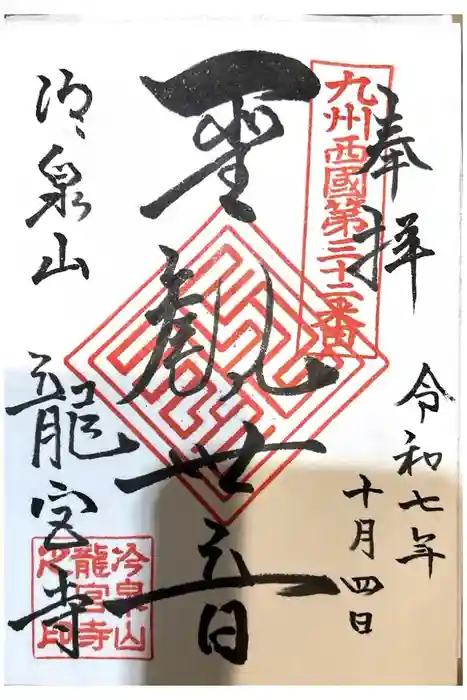 奉拝
九州西國第三十二番
令和七年
十月四日
聖観世音
冷泉山
龍宮寺
冷泉山
龍宮寺
之印